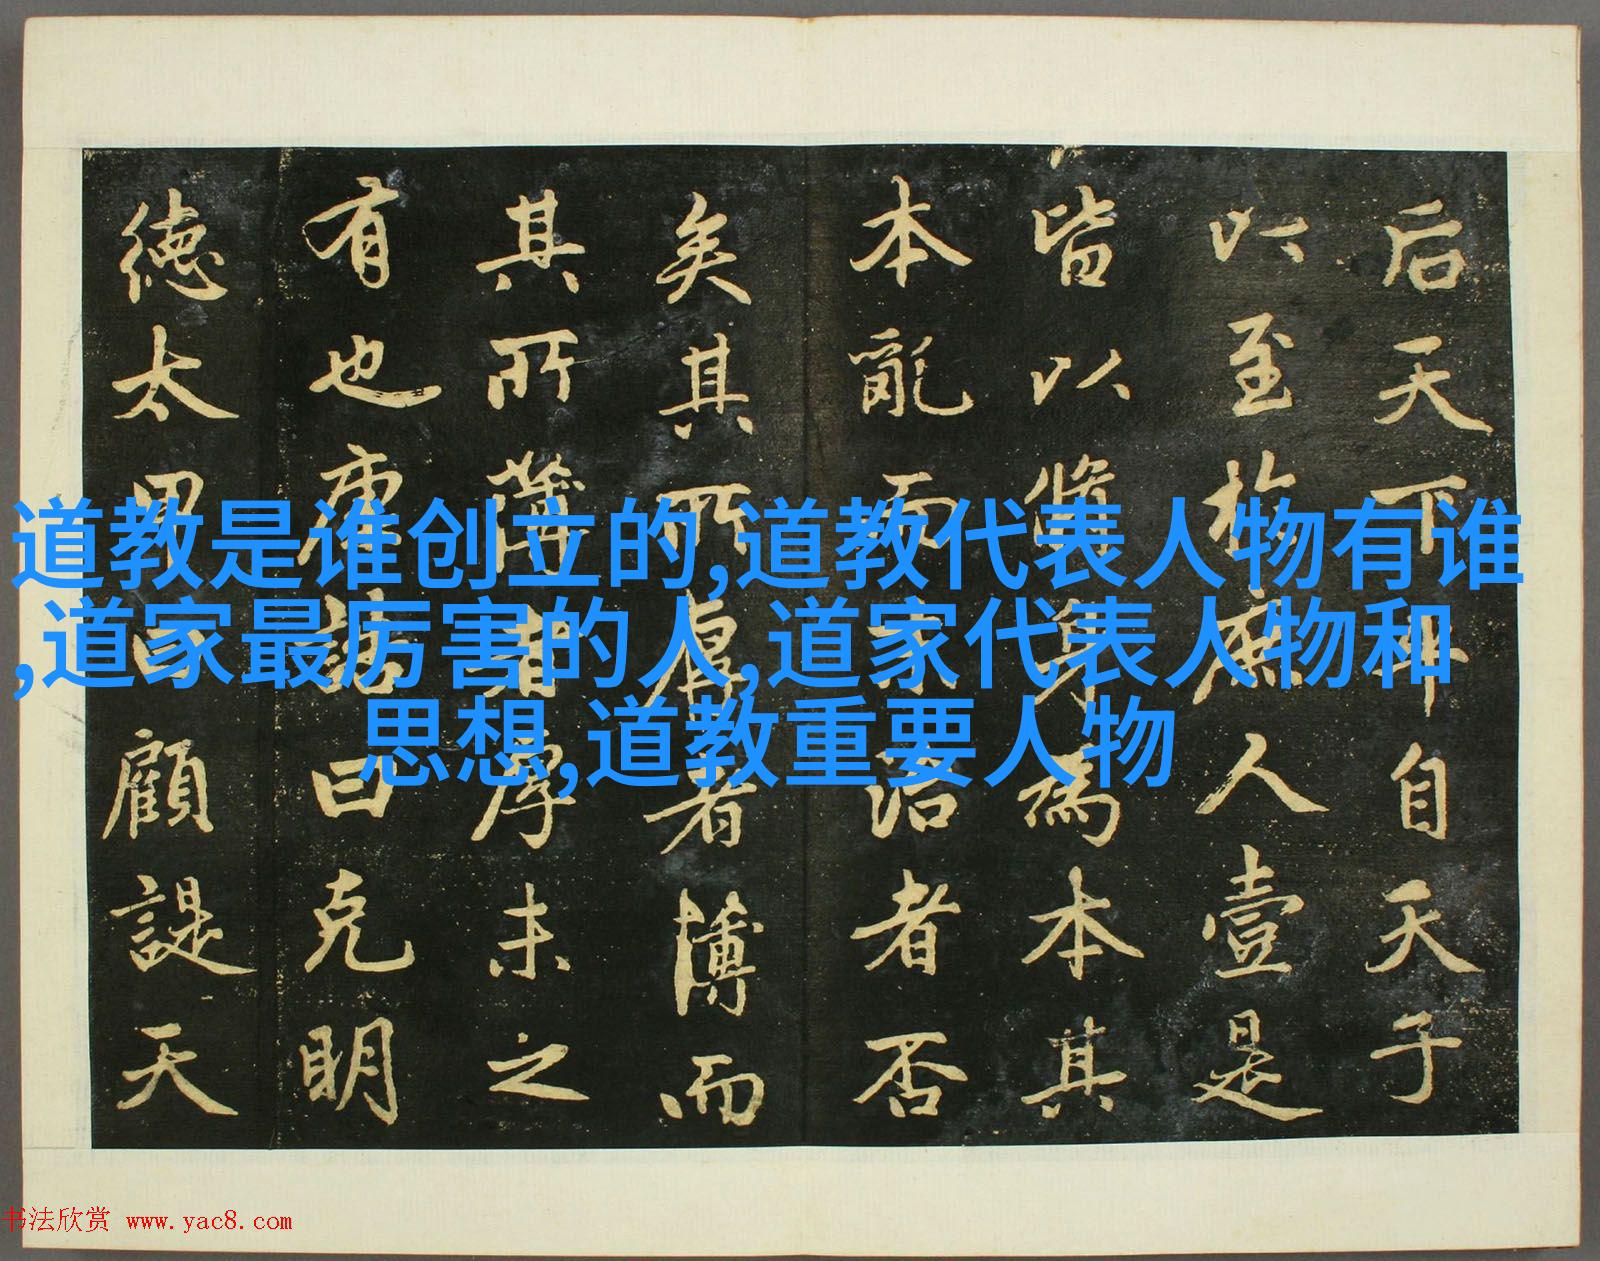 后天下平自天子
以至於庶人壹是
皆以脩身為本其
本亂而末治者否
矣其所厚者薄而
其所薄者厚未之
有也康誥曰克明
德太甲曰顧諟天
道教是谁创立的,道教代表人物有谁
,道家最厉害的人,道家代表人物和
思想,道教重要人物
书法欣赏 www.yac8.com